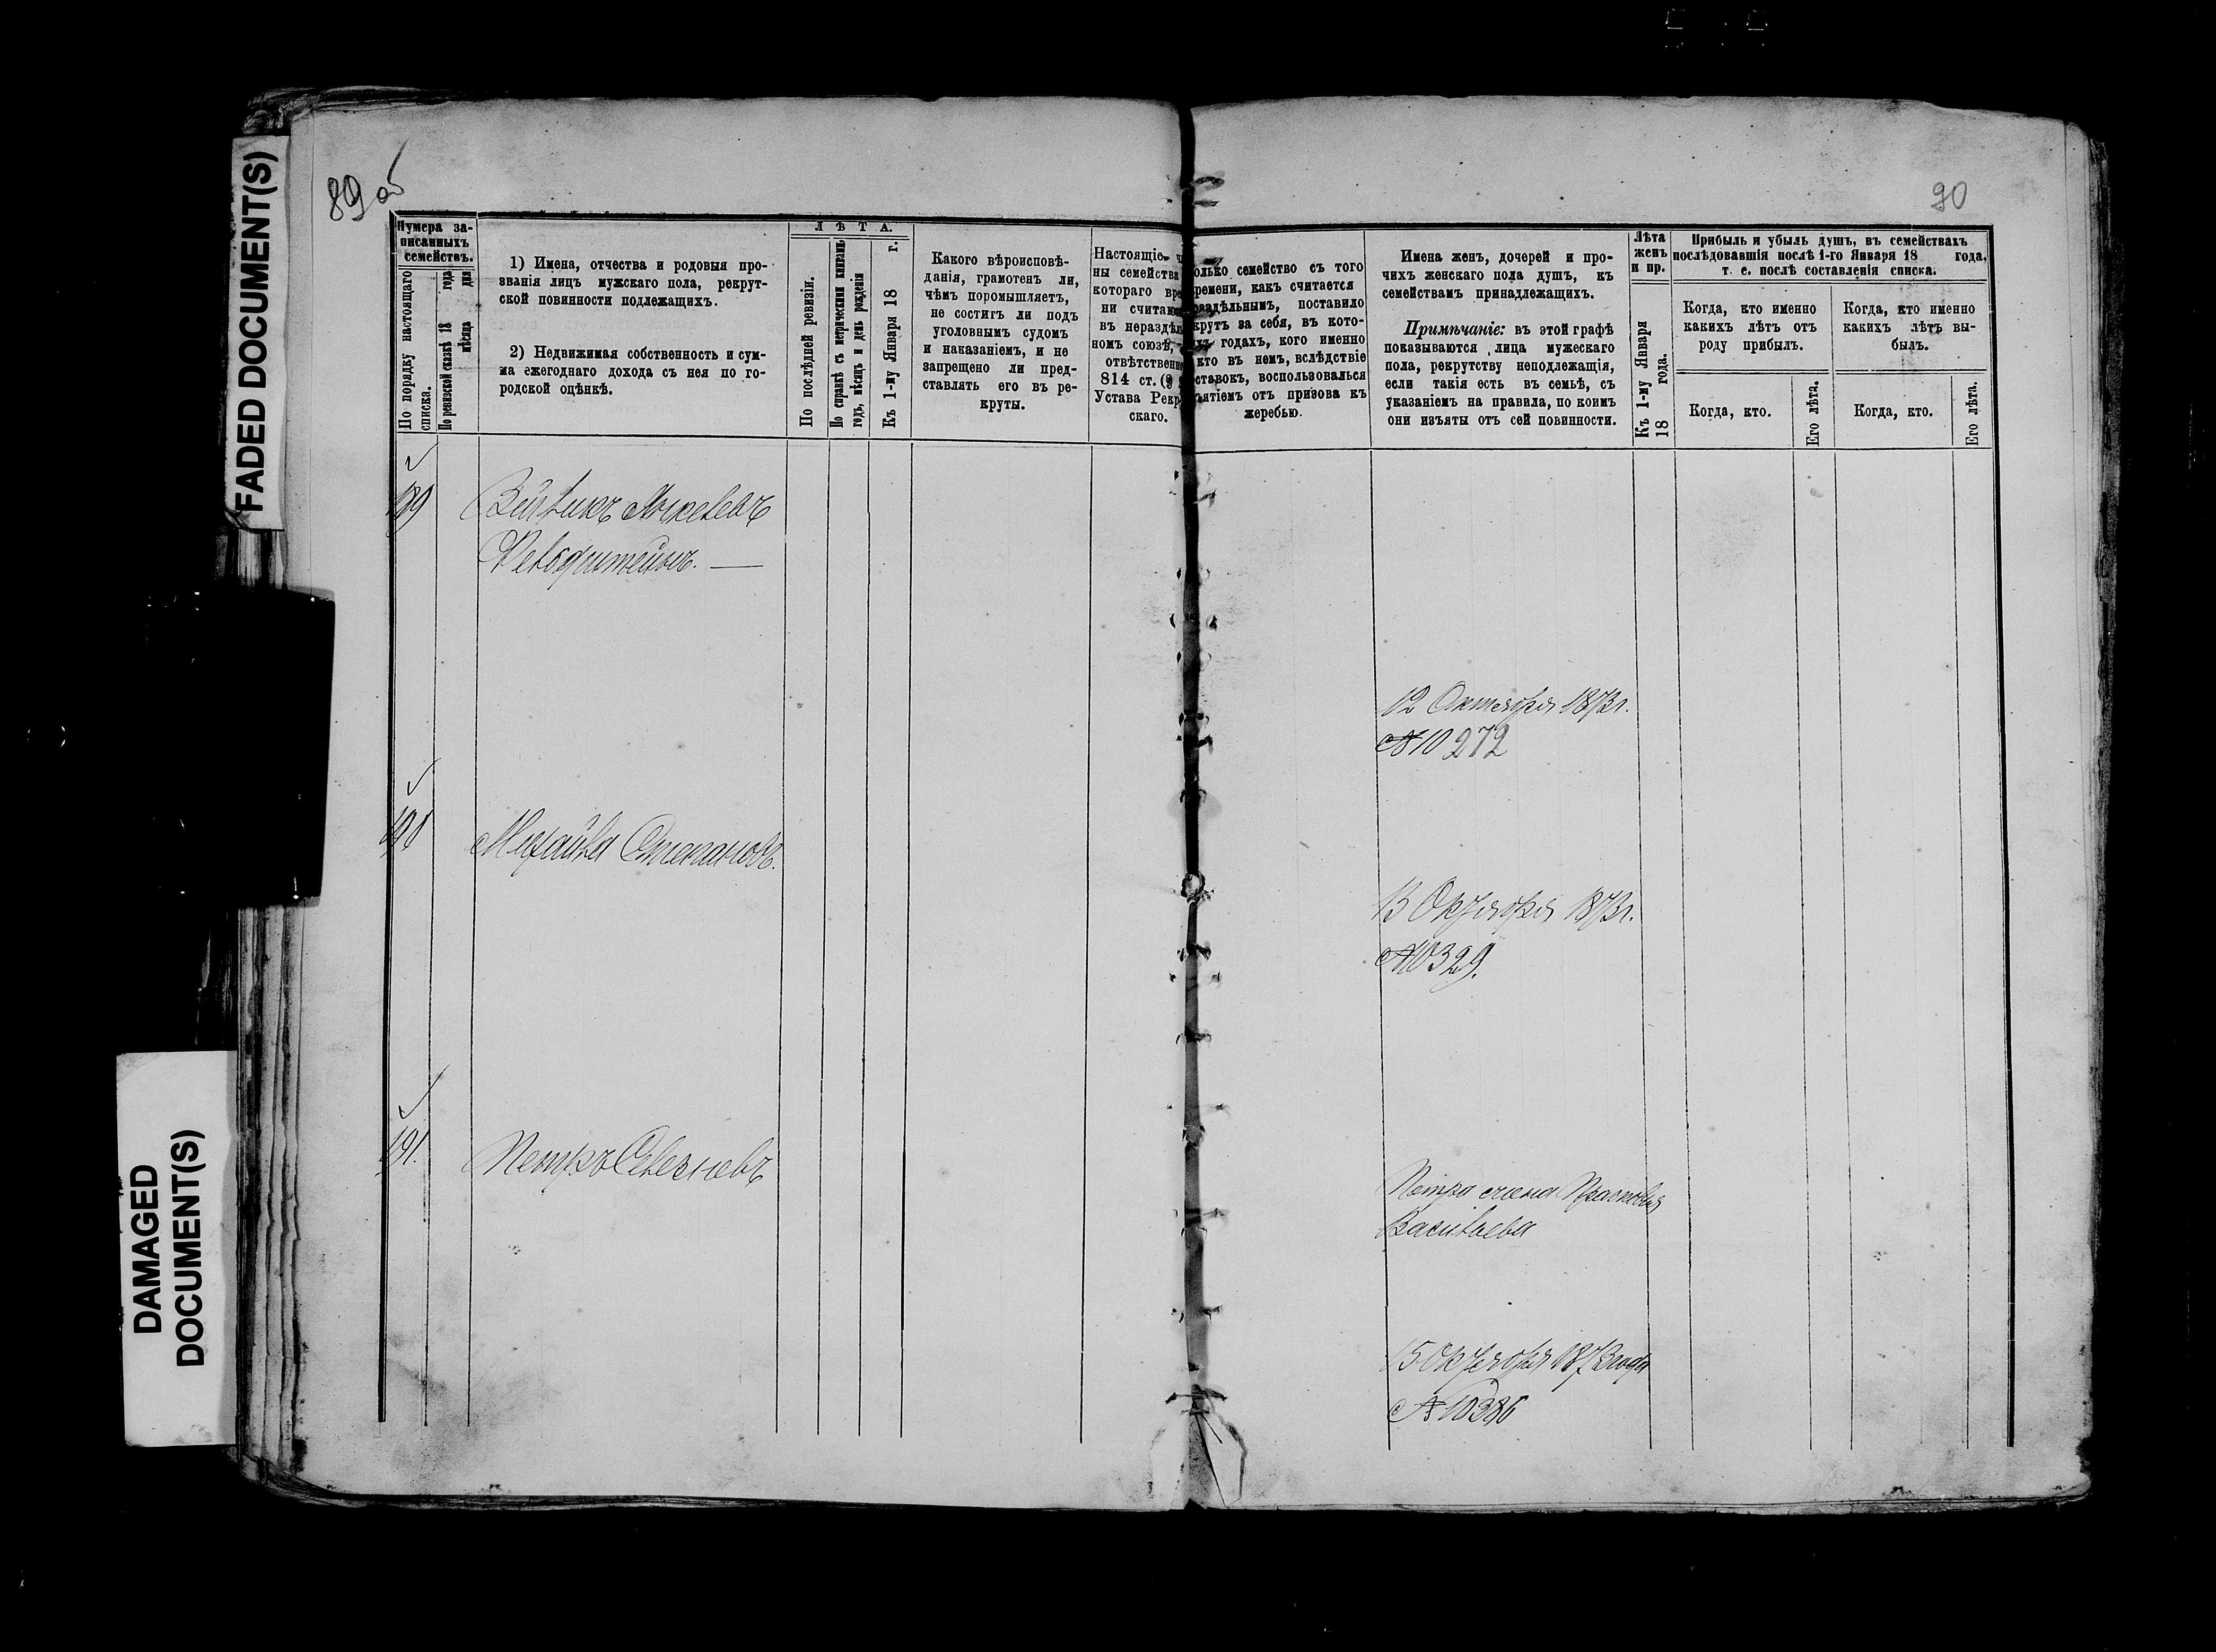 FADED DOCUMENT(S)
DAMAGED
DOCUMENT(S)
89 об
Нумера за-
писанныхъ
семействъ.
По порядку настоящаго
списка.
По ревизской сказкѣ 18 года
мѣсяца дня
1) Имена, отчества и родовыя про-
званія лицъ мужскаго пола, рекрут-
ской повинности подлежащихъ.
2) Недвижимая собственность и сум-
ма ежегоднаго дохода съ нея по го-
родской оцѣнкѣ.
ЛѢТА.
По послѣдней ревизіи.
По справкѣ съ метрическими книгами
годъ, мѣсяцъ и день рожденія
Къ 1-му Января 18 г.
Какого вѣроисповѣ-
данія, грамотенъ ли,
чѣмъ поромышляетъ,
не состигъ ли подъ
уголовнымъ судомъ
и наказаніемъ, и не
запрещено ли пред-
ставлять его въ ре-
круты.
Настоящіе
ны семейства
котораго
ни считаю
въ нераздѣл
номъ союзѣ,
отвѣтственн
814 ст.
Устава Рекр
скаго.
189
Мыкелевъ
190
Михайла Степановъ.
191.
Петръ Селезневъ
90
олько семейство съ того
ремени, какъ считается
раздѣльнымъ, поставило
крутъ за себя, въ кото-
годахъ, кого именно
кто въ немъ, вслѣдствіе
ставокъ, воспользовался
ъятіемъ отъ призова къ
жеребью.
Имена женъ, дочерей и про-
чихъ женскаго пола душъ, къ
семействамъ принадлежащихъ.
Примѣчаніе: въ этой графѣ
показываются лица мужескаго
пола, рекрутству неподлежащія,
если такія есть въ семьѣ, съ
указаніемъ на правила, по коимъ
они изъяты отъ сей повинности.
Лѣта
женъ
и пр.
Къ 1-му Января
18 года.
Прибыль и убыль душъ, въ семействахъ
послѣдовавшія послѣ 1-го Января 18 года,
т. е. послѣ составленія списка.
Когда, кто именно
какихъ лѣтъ отъ
роду прибылъ.
Когда, кто именно
какихъ лѣтъ вы-
былъ.
Когда, кто.
Его лѣта.
Когда, кто.
Его лѣта.
12 Октября 1873 г.
№ 10272
13 Октября 1873 г.
№ 10329.
Петра жена Прасковья
Васильева
15 Октября 1873 года
№ 10386